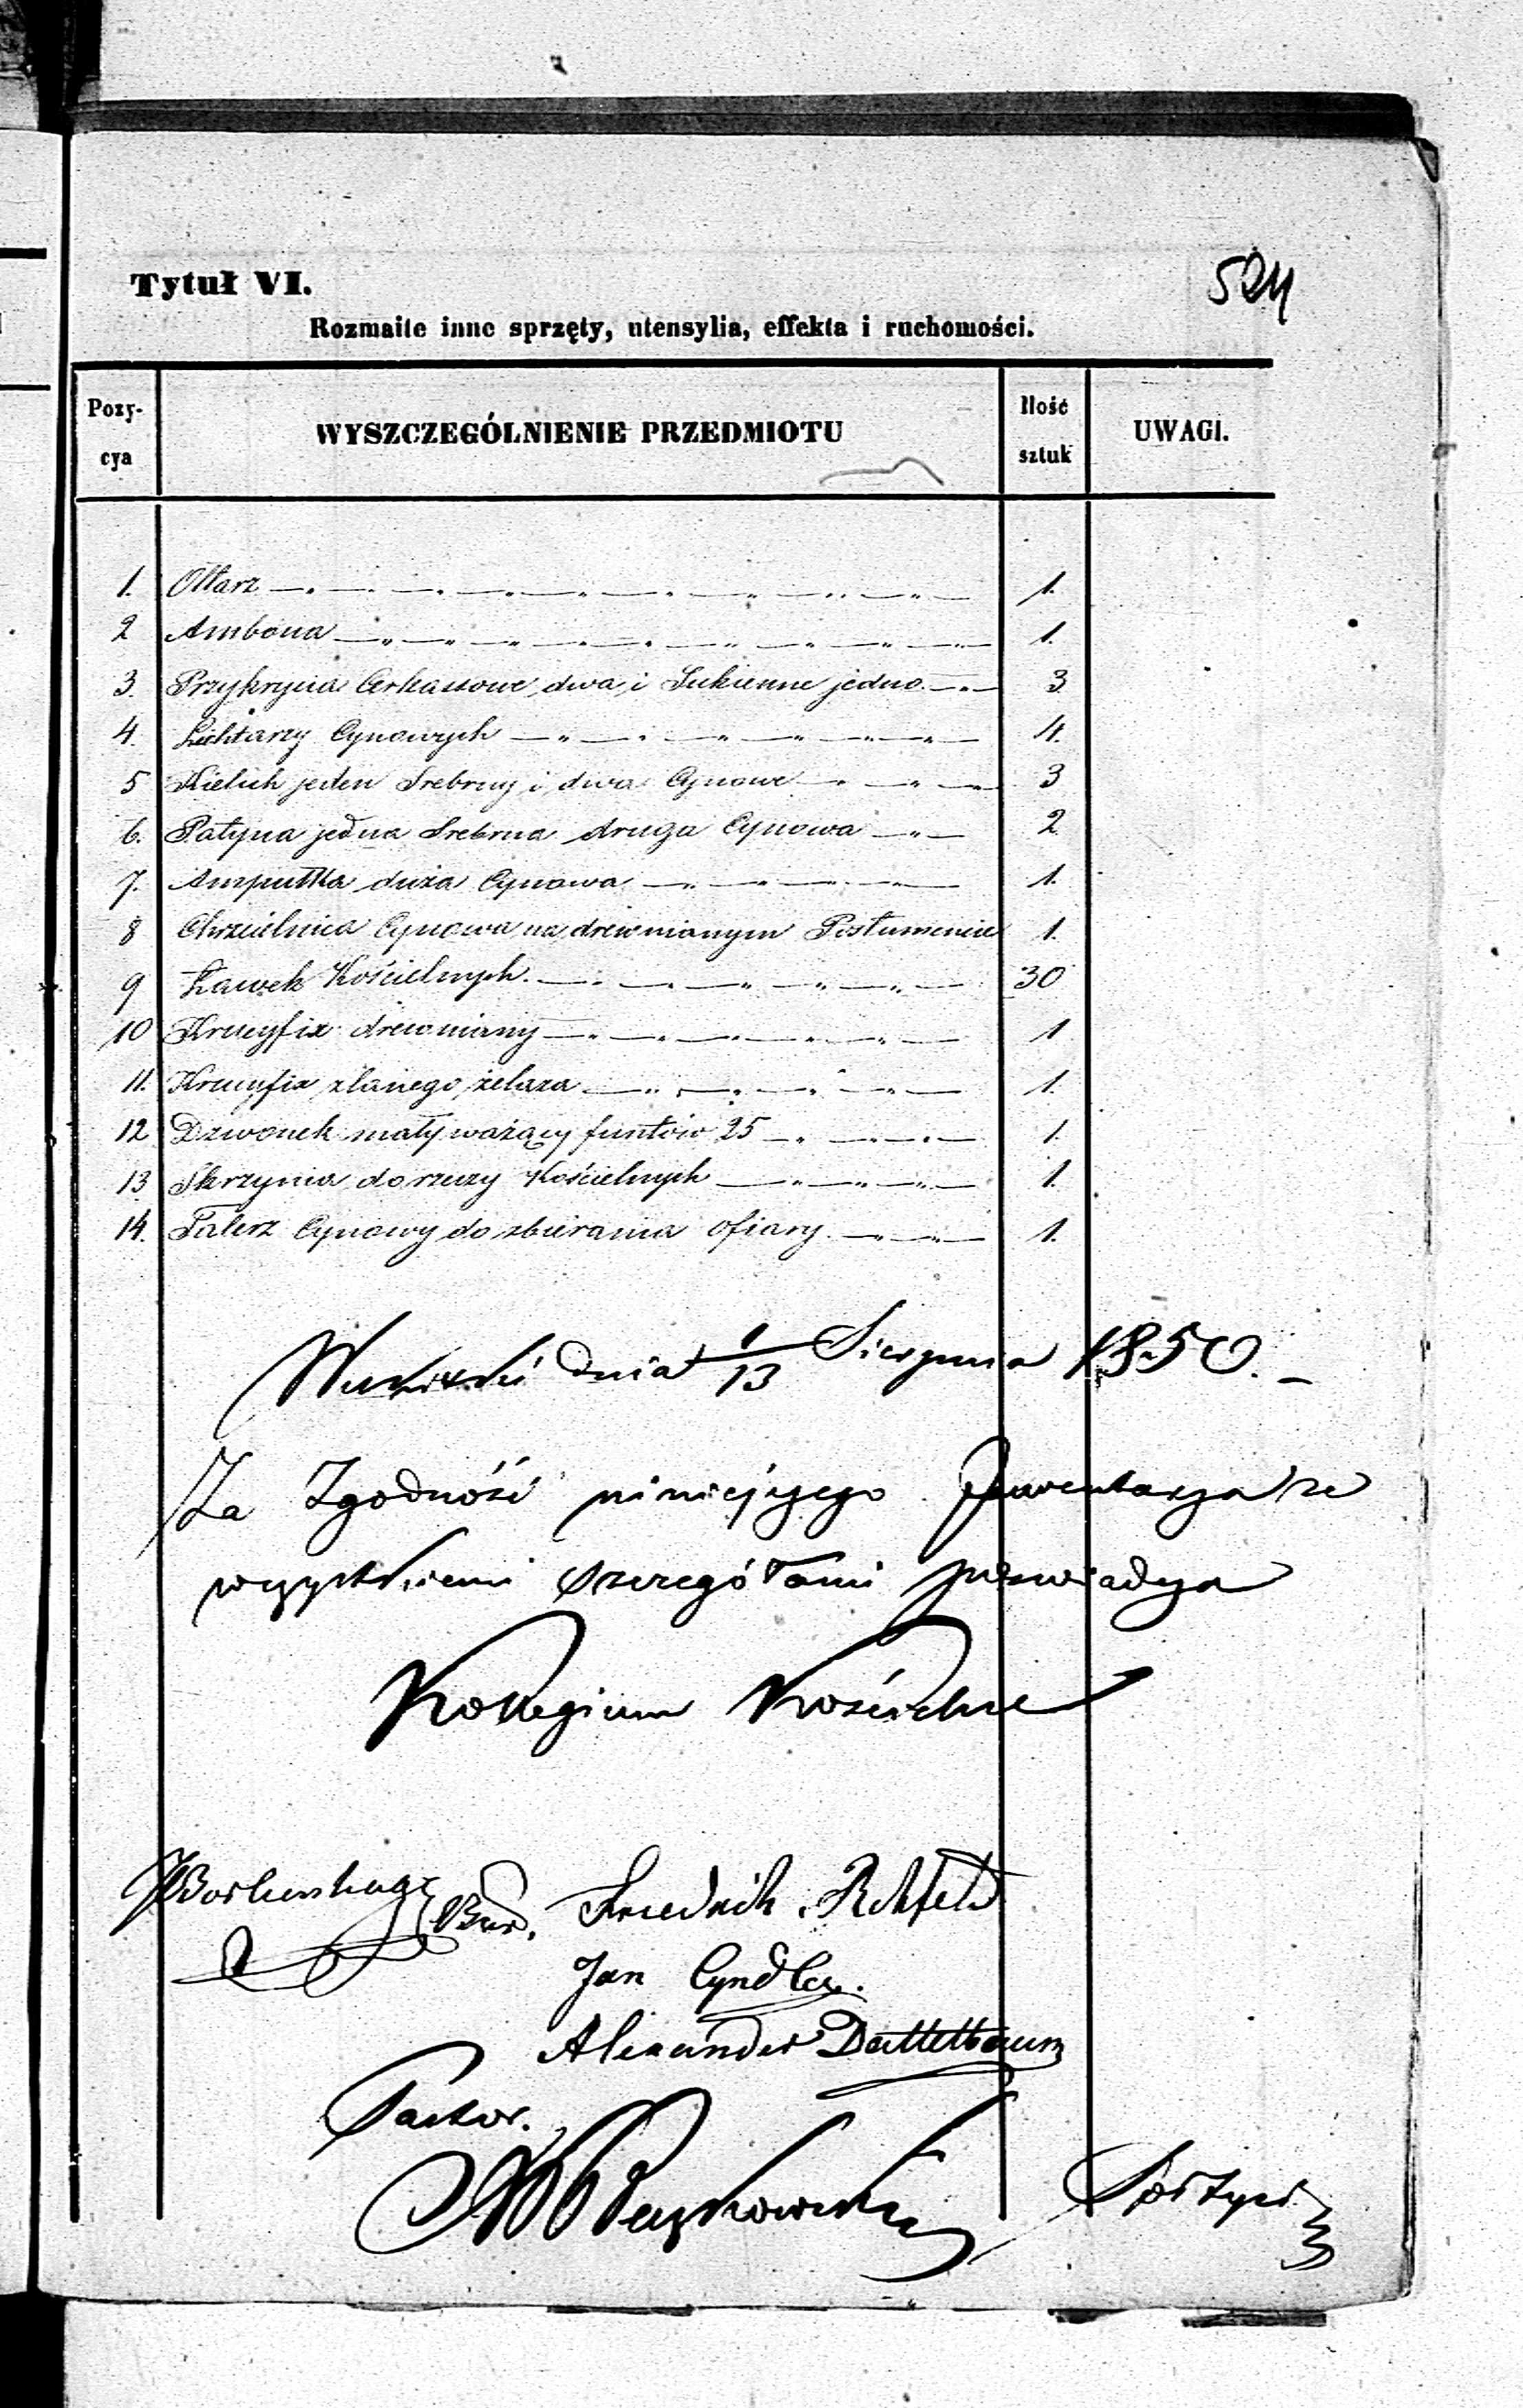 524
Tytuł VI.
Rozmaite inne sprzęty, utensylia, effekta i ruchomości.
Pozycya WYSZCZEGÓLNIENIE PRZEDMIOTU Ilość sztuk UWAGI.
1. Ołtarz 1.
2 Ambona 1.
3. Przykrycia Cerkassowe dwa i Sukienne jedno 3
4. Lichtarzy Cynowych 4.
5 Kielich jeden Srebrny i dwa Cynowe 3
6. Patyna jedna Srebrna druga Cynowa 2
7. Ampułka duża Cynowa 1.
8 Chrzcielnica Cynowa na drewnianym Postumencie 1.
9 Ławek Kościelnych 30
10 Krucyfix drewniany 1
11. Krucyfix z lanego żelaza 1.
12 Dzwonek mały ważący funtów 25 1.
13 Skrzynia do rzeczy Kościelnych 1.
14. Talerz Cynowy do zbierania ofiary 1.
dnia 1/13 Sierpnia 1850.
Za Zgodność niniejszego Inwentarza ze
wszystkiemi szczegółami poświadcza
Kollegium Kościelne
Friedrich
Jan Cyndler.
Alexander Dattelbaum
Pastor.